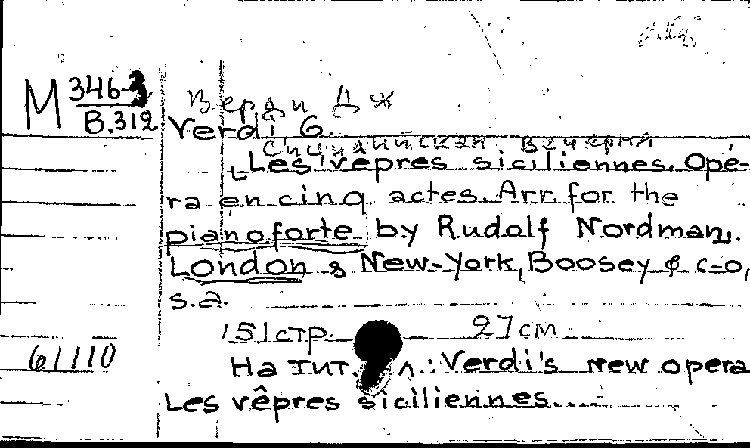 М 346-3
В.312
Верди Дж
Verdi G.
Сицилийская вечерня
Les vêpres siciliennes. Opé-
ra en cinq actes. Arr. for the
pianoforte by Rudolf Nordman.
London & New-York, Boosey & c-o,
s.a.
151 стр. 27 cm
61110
На тит. л.: Verdi's new opera
Les vêpres siciliennes...